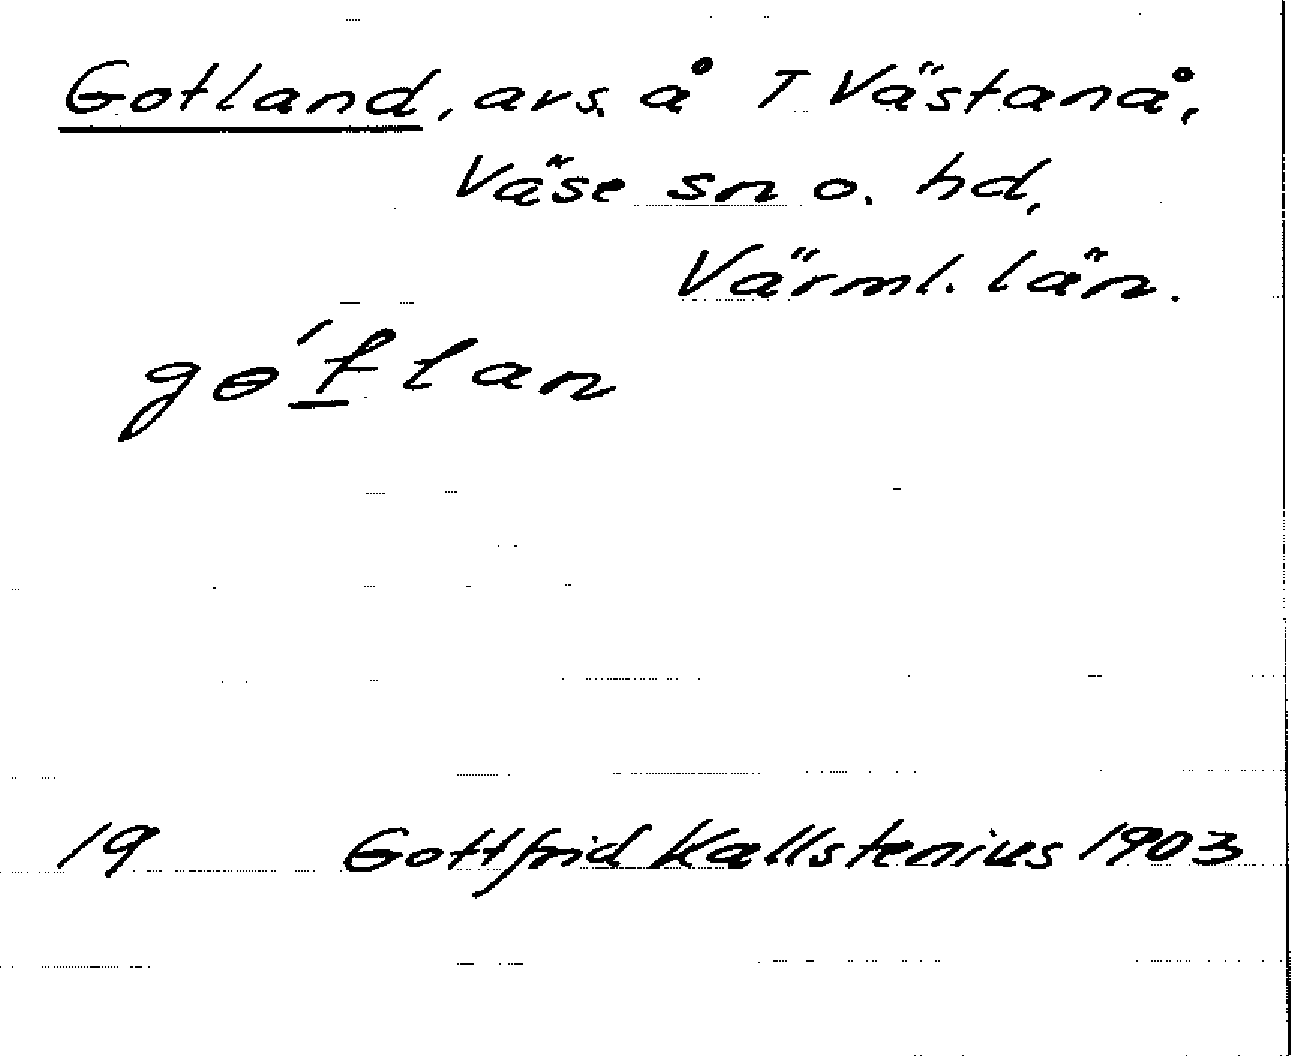 Gotland, avs. å T Västanå,
Väse sn o. hd,
Värml. län.
19 Gottfrid Kallstenius 1903